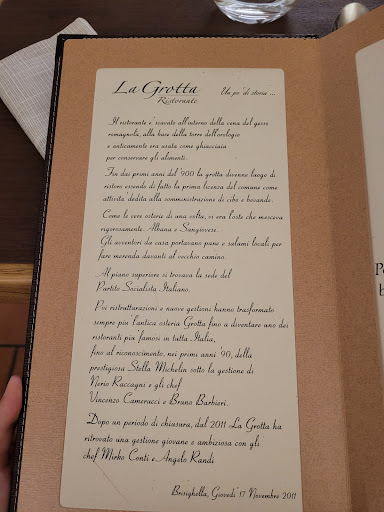 La Grotta
Ristorante
Un po' di storia ...
Il ristorante è scavato all'interno della vena del gesso
romagnola, alla base della torre dell'orologio
e anticamente era usata come ghiacciaia
per conservare gli alimenti.
Fin dai primi anni del 900 la grotta divenne luogo di
ristoro essendo di fatto la prima licenza del comune come
attività dedita alla somministrazione di cibo e bevande.
Come le vere osterie di una volta, vi era l'oste che mesceva
rigorosamente: Albana e Sangiovese.
Gli avventori da casa portavano pane e salumi locali per
fare merenda davanti al vecchio camino.
Al piano superiore si trovava la sede del
Partito Socialista Italiano.
Poi ristrutturazioni e nuove gestioni hanno trasformato
sempre più l'antica osteria Grotta fino a diventare uno dei
ristoranti più famosi in tutta Italia,
fino al riconoscimento, nei primi anni '90, della
prestigiosa Stella Michelin sotto la gestione di
Nerio Raccagni e gli chef
Vincenzo Camerucci e Bruno Barbieri.
Dopo un periodo di chiusura, dal 2011 La Grotta ha
ritrovato una gestione giovane e ambiziosa con gli
chef Mirko Conti e Angelo Randi
Brisighella, Giovedì 17 Novembre 2011